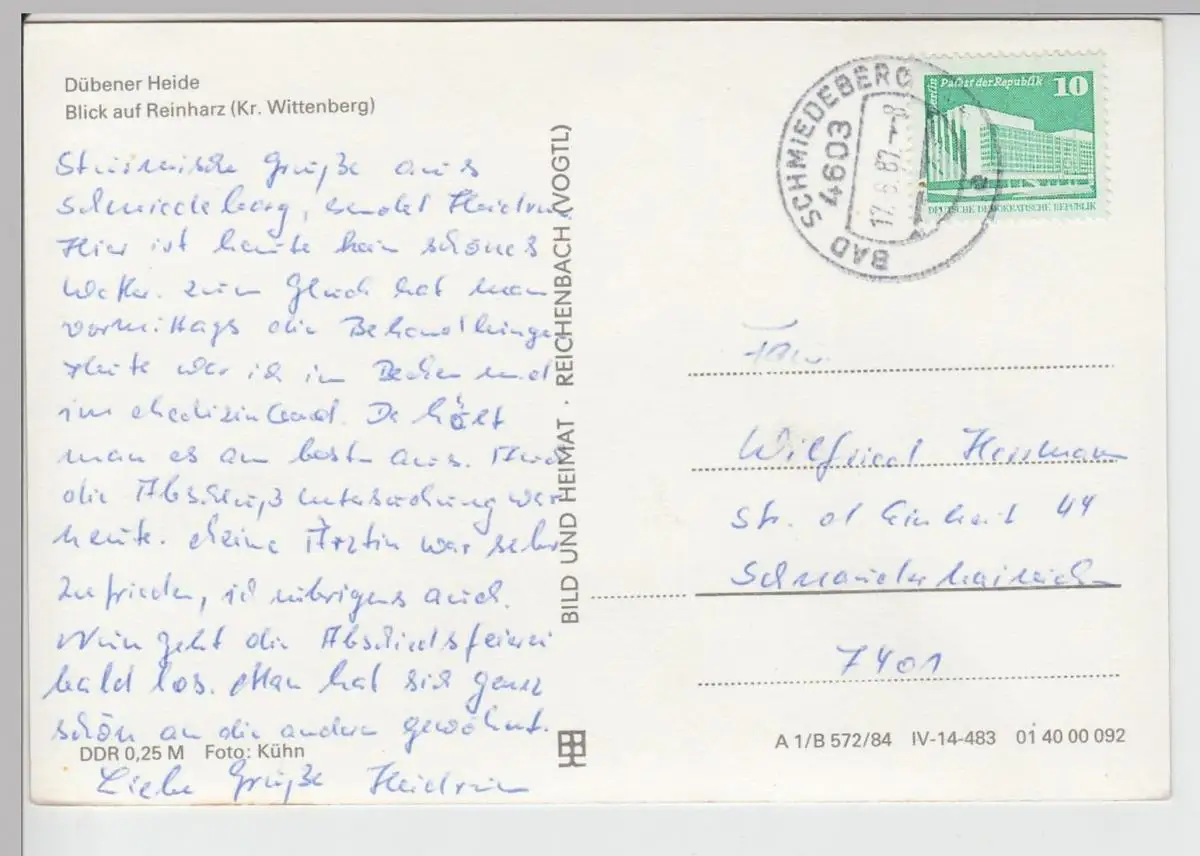 Dübener Heide
Blick auf Reinharz (Kr. Wittenberg)
Stürmische Grüße aus
Schmiedeberg, sendet Heidrun.
Hier ist heute kein schönes
Wetter. Zum Glück hat man
vormittags die Behandlungen
Heute war ich im Becken und
im Medizinbad. Da hält
man es am besten aus. Auch
die Abschlußuntersuchung war
heute. Meine Ärztin war sehr
zufrieden, ich übrigens auch.
Nun geht die Abschiedsfeierei
bald los. Man hat sich ganz
schön an die andern gewöhnt.
Liebe Grüße Heidrun
DDR 0,25 M Foto: Kühn
BILD UND HEIMAT · REICHENBACH (VOGTL)
BAD SCHMIEDEBERG
4603
17.6.87.-8
Berlin Palast der Republik 10
DEUTSCHE DEMOKRATISCHE REPUBLIK
Fam.
Wilfried Herrmann
Str. d Einheit 44
Schnauderhainichen
7401
A 1/B 572/84 IV-14-483 01 40 00 092